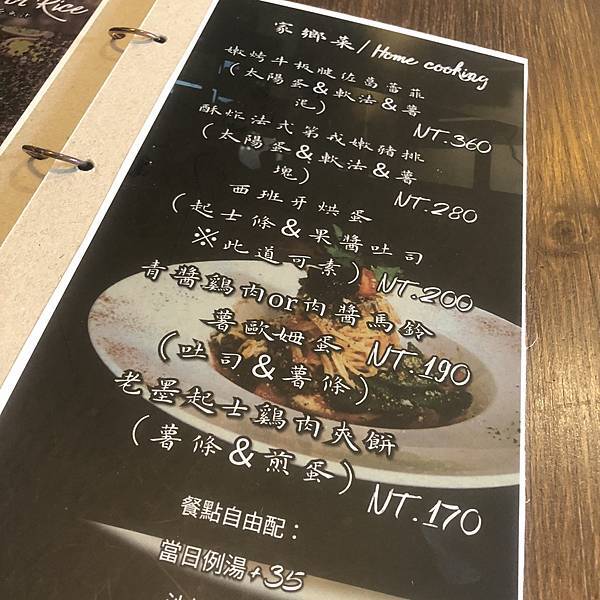 Rice
家鄉菜/Home cooking
嫩烤牛板腱佐葛蕾菲
(太陽蛋&軟法&薯
泥)
NT.360
酥炸法式第戎嫩豬排
(太陽蛋&軟法&薯
塊)
NT.280
西班牙烘蛋
(起士條&果醬吐司
※此道可素)
NT.200
青醬雞肉or肉醬馬鈴
薯歐姆蛋 NT.190
(吐司&薯條)
老墨起士雞肉夾餅
(薯條&煎蛋)
NT.170
餐點自由配：
當日例湯+35